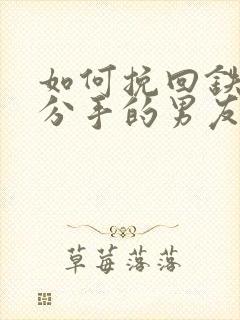 如何挽回鉄
分手的男友
草莓落落